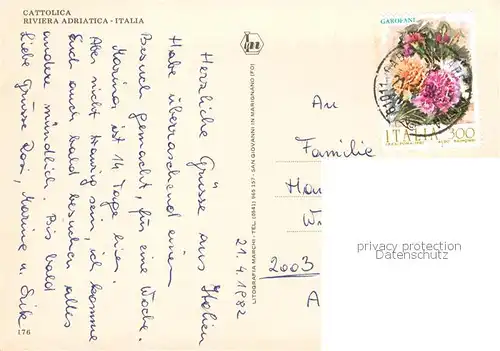 CATTOLICA
RIVIERA ADRIATICA - ITALIA
Herzliche Grüsse aus Italien
Habe überraschend einen
Besuch gemacht, für eine Woche.
Marina ist 14 Tage hier.
Aber nicht traurig sein, ich komme
Euch auch bald besuchen alles
andere mündlich. Bis bald
Liebe Grüsse Rosi, Marina u. Erik
21.4.1982
176
LITOGRAFIA MARCHI - TEL. (0541) 965 157 - SAN GIOVANNI IN MARIGNANO (FO)
GAROFANI
ITALIA 300
An
Familie
Ha
W
2003
A
privacy protection